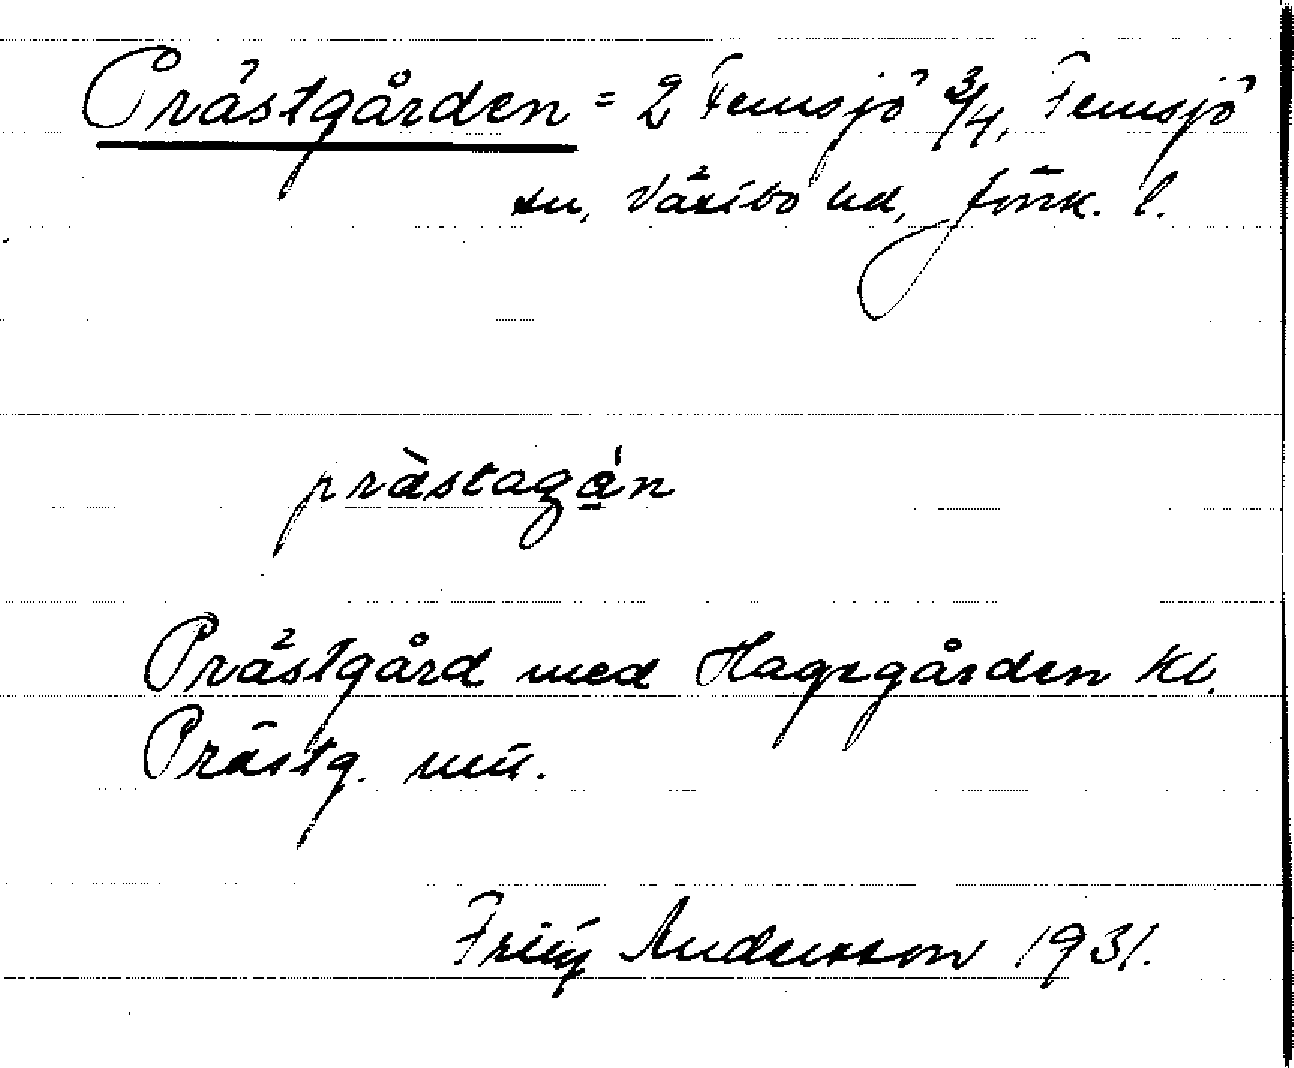 Prästgården = 2 Femsjö 3/4, Femsjö
sn, Västbo hd, Jönk. l.
prästagån
Prästgård med Hagegården Kl.
Prästg. mn.
Andersson 1931.